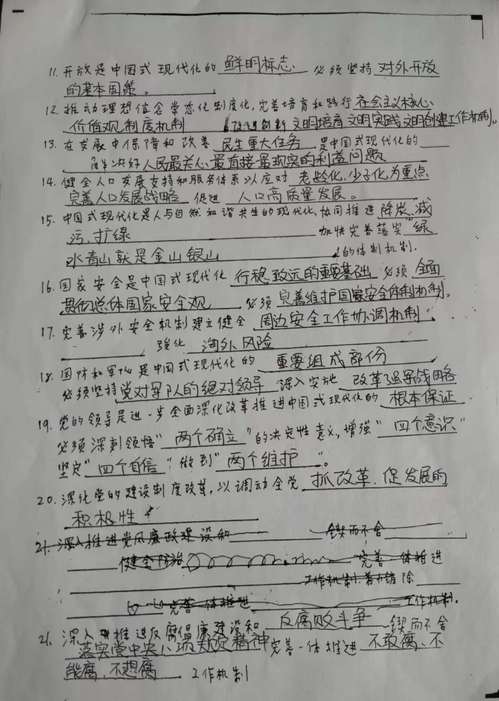 11. 开放是中国式现代化的 鲜明标志 必须坚持 对外开放
的基本国策.
12. 推动理想信念常态化制度化,完善培育和践行 社会主义核心
价值观制度机制 改进创新 文明培育 文明实践 文明创建工作机制.
13. 在发展中保障和改善 民生重大任务 是中国式现代化的
解决好人民最关心最直接最现实的利益问题.
14. 健全人口发展支持和服务体系以应对 老龄化,少子化为重点
完善人口发展战略 促进 人口高质量发展.
15. 中国式现代化是人与自然和谐共生的现代化,协同推进 降炭.减
污.扩绿 加快完善落实"绿
水青山就是金山银山 的体制机制.
16. 国家安全是中国式现代化 行稳致远的重要基础 必须 全面
贯彻总体国家安全观 必须 完善维护国家安全体制机制.
17. 完善涉外安全机制 建立健全 周边安全工作协调机制
强化 海外风险
18. 国防和军队是中国式现代化的 重要组成部份
必须坚持 党对军队的绝对领导 深入实施 改革强军战略
19. 党的领导是进一步全面深化改革推进中国式现代化的 根本保证
必须深刻领悟"两个确立"的决定性意义,增强"四个意识"
坚定"四个自信"做到"两个维护".
20. 深化党的建设制度改革,以调动全党 抓改革.促发展的
积极性
21. 深入推进党风廉政建设和 锲而不舍
健全防治 完善一体推进
工作机制
完善一体推进 工作机制.
21. 深入推进反腐 反腐败斗争 锲而不舍
落实党中央八项规定精神 完善一体推进 不敢腐、不
能腐,不想腐 工作机制